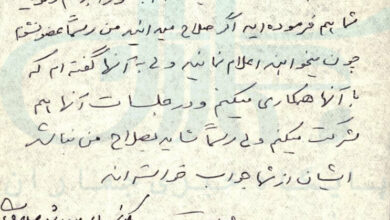 شما هم فرموده‌اید اگر صلاح میدانید من رسماً عضو شوم
چون میخواهند اعلام نمایند ولی به آنها گفته‌ام که
با آنها همکاری میکنم و در جلسات آنها هم
شرکت میکنم ولی رسماً شاید بصلاح من نباشد
ایشان از شما جواب خواسته‌اند